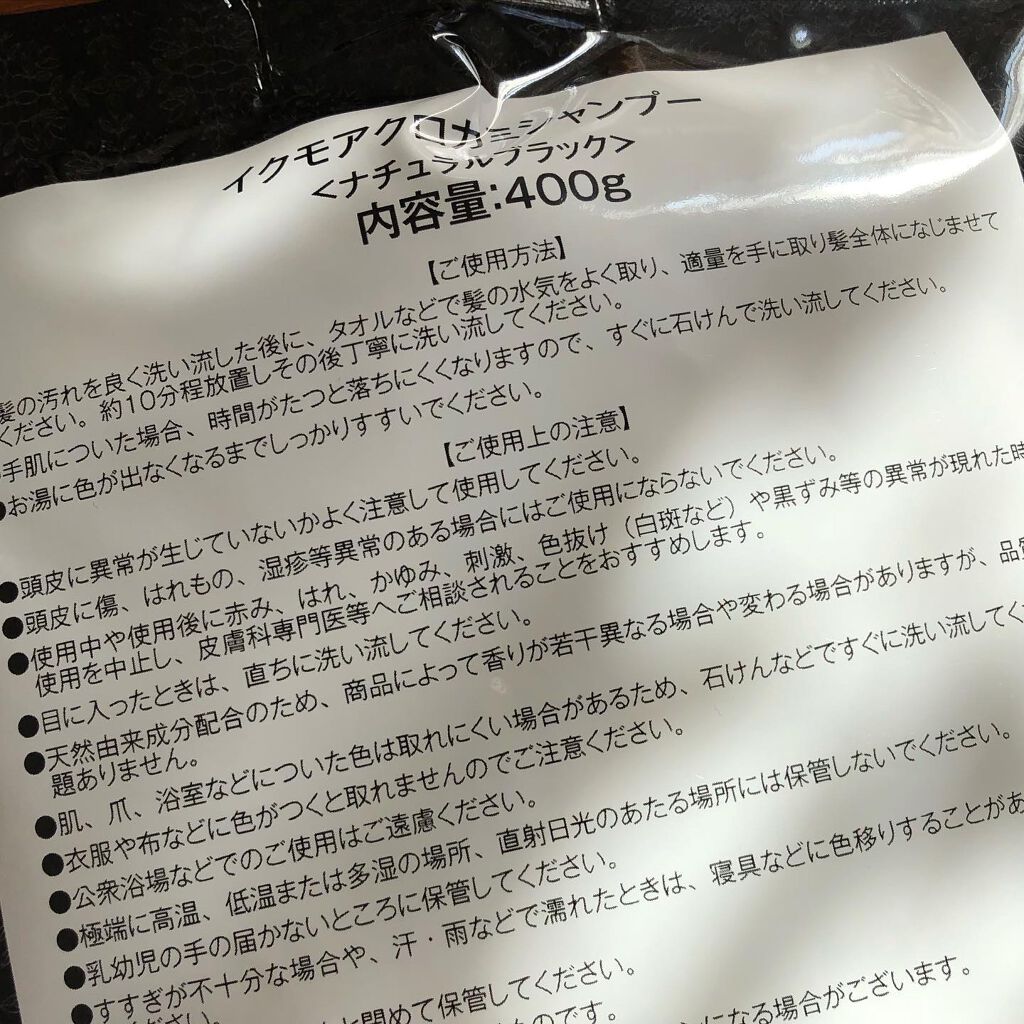 イクモアクロメミシャンプー
<ナチュラルブラック>
内容量:400g
【ご使用方法】
髪の汚れを良く洗い流した後に、タオルなどで髪の水気をよく取り、適量を手に取り髪全体になじませて
ください。約10分程放置しその後丁寧に洗い流してください。
手肌についた場合、時間がたつと落ちにくくなりますので、すぐに石けんで洗い流してください。
●お湯に色が出なくなるまでしっかりすすいでください。
【ご使用上の注意】
●頭皮に異常が生じていないかよく注意して使用してください。
●頭皮に傷、はれもの、湿疹等異常のある場合にはご使用にならないでください。
●使用中や使用後に赤み、はれ、かゆみ、刺激、色抜け（白斑など）や黒ずみ等の異常が現れた時
使用を中止し、皮膚科専門医等へご相談されることをおすすめします。
●目に入ったときは、直ちに洗い流してください。
●天然由来成分配合のため、商品によって香りが若干異なる場合や変わる場合がありますが、品質
題ありません。
●肌、爪、浴室などについた色は取れにくい場合があるため、石けんなどですぐに洗い流してく
●衣服や布などに色がつくと取れませんのでご注意ください。
●公衆浴場などでのご使用はご遠慮ください。
●極端に高温、低温または多湿の場所、直射日光のあたる場所には保管しないでください。
●乳幼児の手の届かないところに保管してください。
●すすぎが不十分な場合や、汗・雨などで濡れたときは、寝具などに色移りすることがあ
ください。
と閉めて保管してください。
のです。
になる場合がございます。